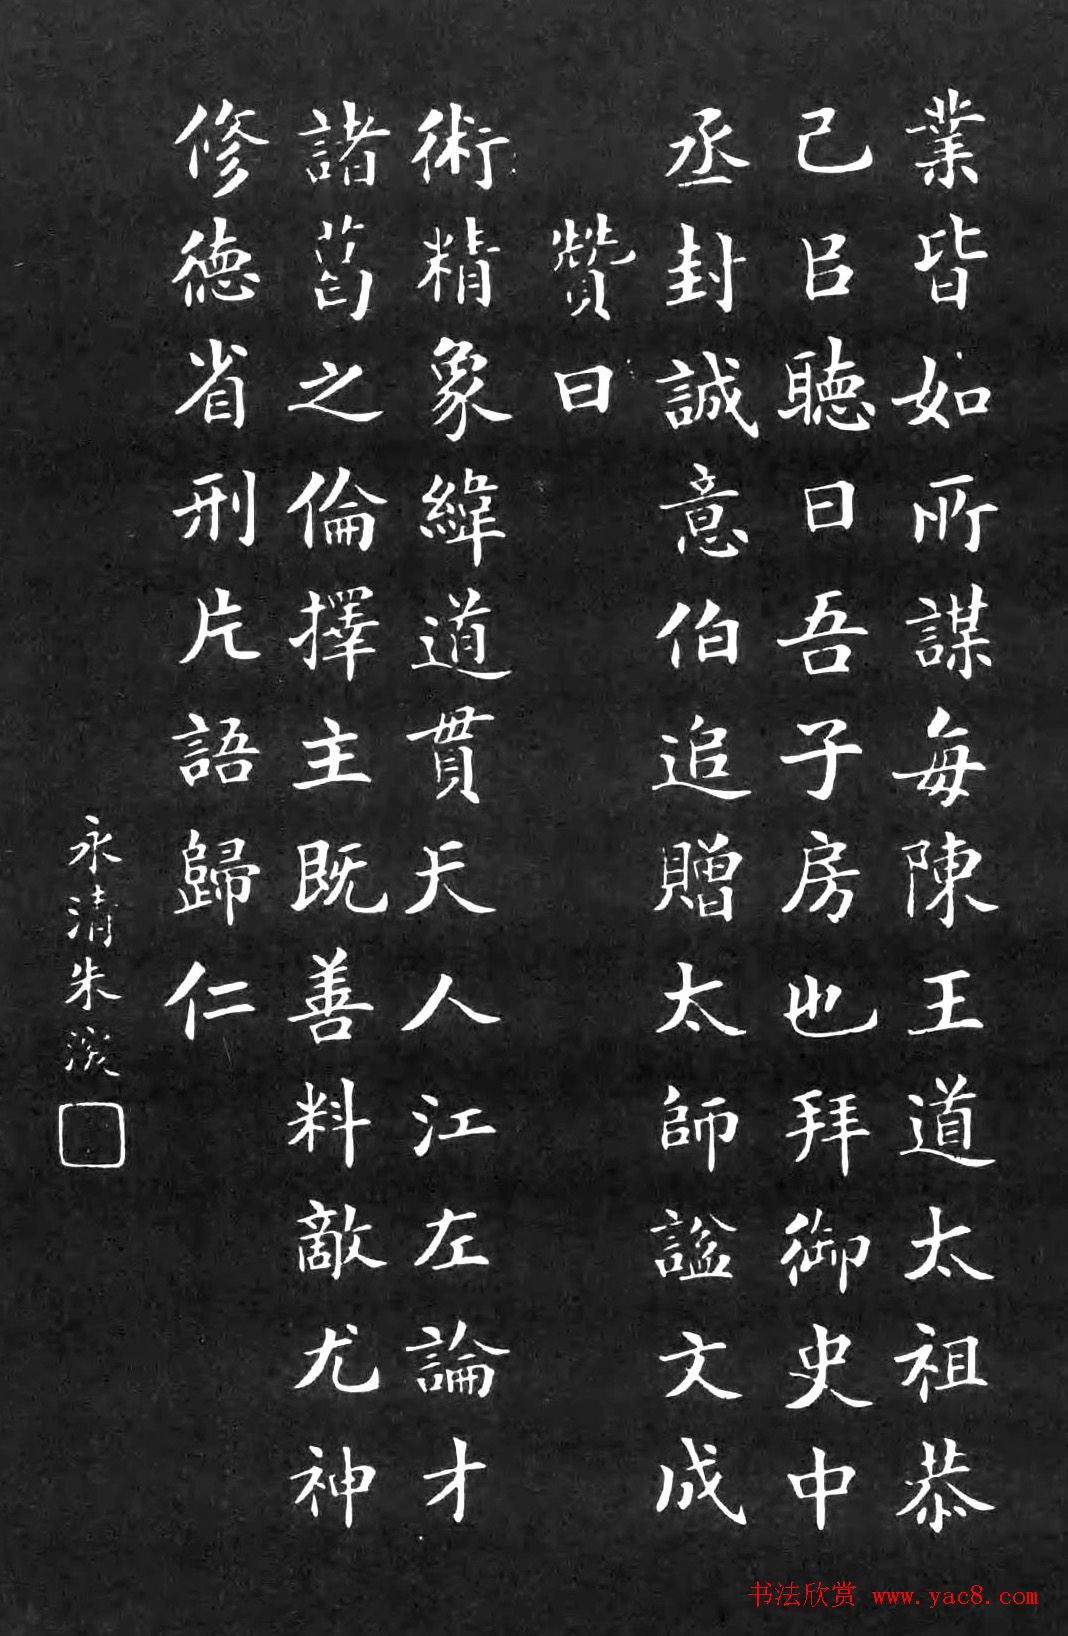 業皆如所謀每陳王道太祖恭
己㠯聽曰吾子房也拜御史中
丞封誠意伯追贈太師諡文成
贊曰
術精象緯道貫天人江左論才
諸葛之倫擇主既善料敵尤神
修德省刑片語歸仁
永清朱
书法欣赏 www.yac8.com